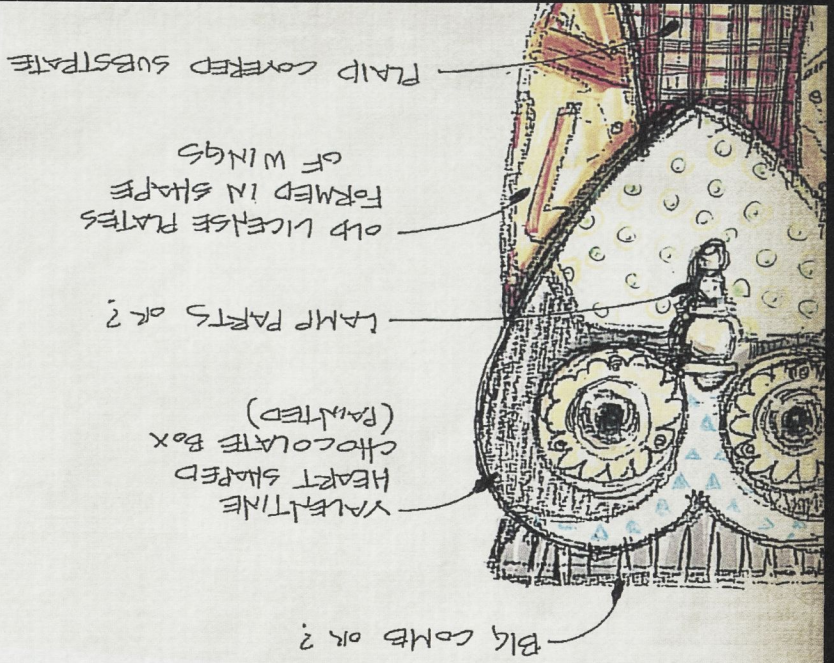 BIG COMB OR ?
VALENTINE
HEART SHAPED
CHOCOLATE BOX
(PAINTED)
LAMP PARTS OR ?
OLD LICENSE PLATES
FORMED IN SHAPE
OF WINGS
PLAID COVERED SUBSTRATE